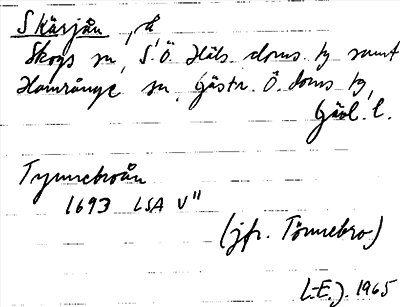 Skärjån, å
Skogs sn, S.Ö. Häls. doms. tg samt
Hamrånge sn, Gästr. Ö. doms. tg,
Gävl. l.
Tynnebroån
1693 LSA V"
(jfr. Tönnebro)
L.E.J. 1965